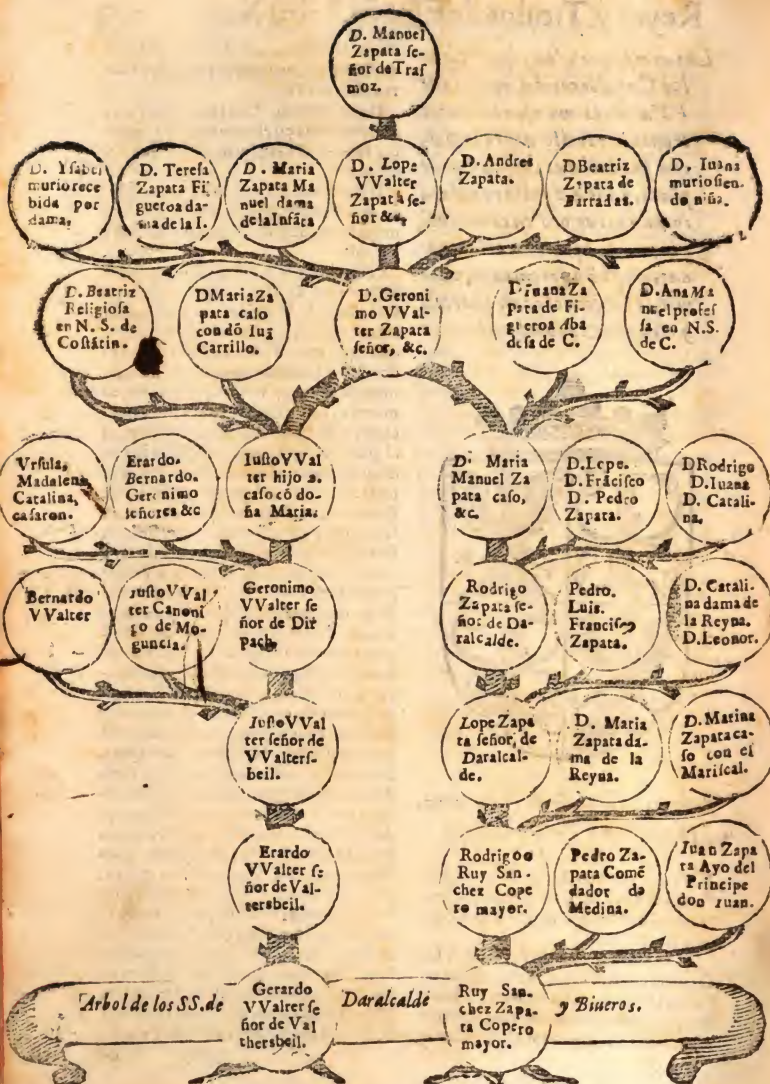 D. Manuel
Zapata se-
ñor de Tras
moz.
D. Ysabel
murio rece
bida por
dama,
D. Teresa
Zapata Fi
gueroa da-
ma de la I.
D. Maria
Zapata Ma
nuel dama
de la Infãta
D. Lope
VValter
Zapata se-
ñor &c,
D. Andres
Zapata.
DBeatriz
Zapata de
Barradas.
D. Iuana
murio sien.
do niña.
D. Beatriz
Religiosa
en N. S. de
Costãtin.
DMaria Za
pata caso
con dõ Iuã
Carrillo.
D. Geroni
mo VVal-
ter Zapata
señor, &c.
D Iuana Za
pata de Fi-
gueroa Aba
desa de C.
D. Ana Ma
nuel profes
sa en N.S.
de C.
Vrsula,
Madalena,
Catalina,
casaron.
Erardo.
Bernardo.
Geronimo
señores &c
Iusto VVal
ter hijo 2.
caso cõ do-
ña Maria.
D. Maria
Manuel Za
pata caso,
&c.
D. Lope.
D. Frãcisco
D. Pedro
Zapata.
DRodrigo
D. Iuana
D. Catali-
na,
Bernardo
VValter
Iusto VVal
ter Canoni
go de Mo-
guncia.
Geronimo
VValter se
ñor de Dir
pach,
Rodrigo
Zapata se-
ñor de Da-
ralcalde.
Pedro.
Luis.
Francisco
Zapata.
D. Catali-
na dama de
la Reyna.
D. Leonor.
Iusto VVal
ter señor de
VValters-
beil.
Lope Zapa
ta señor, de
Daralcal-
de.
D. Maria
Zapata da-
ma de la
Reyna.
D. Marina
Zapata ca-
so con el
Mariscal.
Erardo
VValter se
ñor de Val-
tersbeil.
Rodrigo o
Ruy San-
chez Cope
ro mayor.
Pedro Za-
pata Comẽ
dador de
Medina.
Iuan Zapa
ta Ayo del
Principe
don Iuan.
Arbol de los SS. de
Gerardo
VValter se
ñor de Val
thersbeil.
Daralcalde
Ruy San-
chez Zapa-
ta Copero
mayor.
y Biueros.